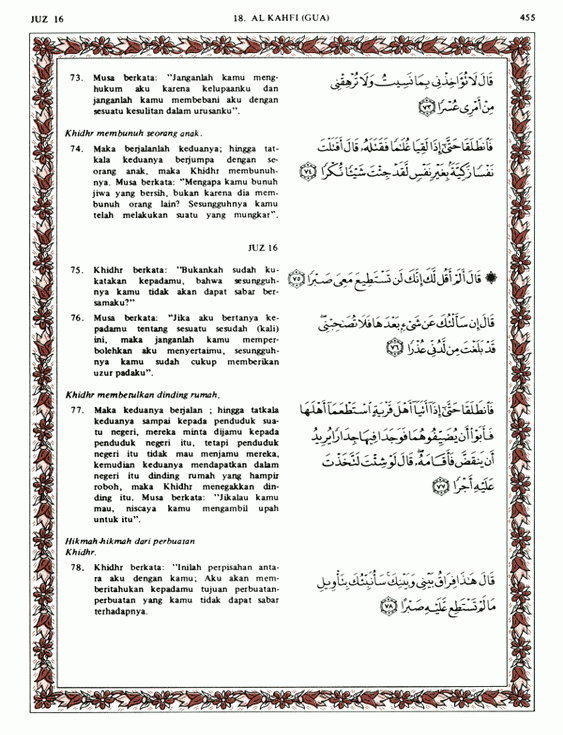 JUZ 16
18. AL KAHFI (GUA)
455
73. Musa berkata: "Janganlah kamu meng-
hukum aku karena kelupaanku dan
janganlah kamu membebani aku dengan
sesuatu kesulitan dalam urusanku".
قَالَ لَا تُؤَاخِذْنِي بِمَا نَسِيتُ وَلَا تُرْهِقْنِي
مِنْ أَمْرِي عُسْرًا ﴿٧٣﴾
Khidhr membunuh seorang anak.
74. Maka berjalanlah keduanya; hingga tat-
kala keduanya berjumpa dengan se-
orang anak, maka Khidhr membunuh-
nya. Musa berkata: "Mengapa kamu bunuh
jiwa yang bersih, bukan karena dia mem-
bunuh orang lain? Sesungguhnya kamu
telah melakukan suatu yang mungkar".
فَانْطَلَقَا حَتَّىٰ إِذَا لَقِيَا غُلَامًا فَقَتَلَهُ، قَالَ أَقَتَلْتَ
نَفْسًا زَكِيَّةً بِغَيْرِ نَفْسٍ لَقَدْ جِئْتَ شَيْئًا نُكْرًا ﴿٧٤﴾
JUZ 16
75. Khidhr berkata: "Bukankah sudah ku-
katakan kepadamu, bahwa sesungguh-
nya kamu tidak akan dapat sabar ber-
samaku?"
قَالَ أَلَمْ أَقُلْ لَكَ إِنَّكَ لَنْ تَسْتَطِيعَ مَعِيَ صَبْرًا ﴿٧٥﴾
76. Musa berkata: "Jika aku bertanya ke-
padamu tentang sesuatu sesudah (kali)
ini, maka janganlah kamu memper-
bolehkan aku menyertaimu, sesungguh-
nya kamu sudah cukup memberikan
uzur padaku".
قَالَ إِنْ سَأَلْتُكَ عَنْ شَيْءٍ بَعْدَهَا فَلَا تُصَاحِبْنِي
قَدْ بَلَغْتَ مِنْ لَدُنِّي عُذْرًا ﴿٧٦﴾
Khidhr membetulkan dinding rumah.
77. Maka keduanya berjalan ; hingga tatkala
keduanya sampai kepada penduduk sua-
tu negeri, mereka minta dijamu kepada
penduduk negeri itu, tetapi penduduk
negeri itu tidak mau menjamu mereka,
kemudian keduanya mendapatkan dalam
negeri itu dinding rumah yang hampir
roboh, maka Khidhr menegakkan din-
ding itu. Musa berkata: "Jikalau kamu
mau, niscaya kamu mengambil upah
untuk itu".
فَانْطَلَقَا حَتَّىٰ إِذَا أَتَيَا أَهْلَ قَرْيَةٍ اسْتَطْعَمَا أَهْلَهَا
فَأَبَوْا أَنْ يُضَيِّفُوهُمَا فَوَجَدَا فِيهَا جِدَارًا يُرِيدُ
أَنْ يَنْقَضَّ فَأَقَامَهُ، قَالَ لَوْ شِئْتَ لَتَّخَذْتَ
عَلَيْهِ أَجْرًا ﴿٧٧﴾
Hikmah-hikmah dari perbuatan
Khidhr.
78. Khidhr berkata: "Inilah perpisahan anta-
ra aku dengan kamu; Aku akan mem-
beritahukan kepadamu tujuan perbuatan-
perbuatan yang kamu tidak dapat sabar
terhadapnya.
قَالَ هَٰذَا فِرَاقُ بَيْنِي وَبَيْنِكَ سَأُنَبِّئُكَ بِتَأْوِيلِ
مَا لَمْ تَسْتَطِعْ عَلَيْهِ صَبْرًا ﴿٧٨﴾